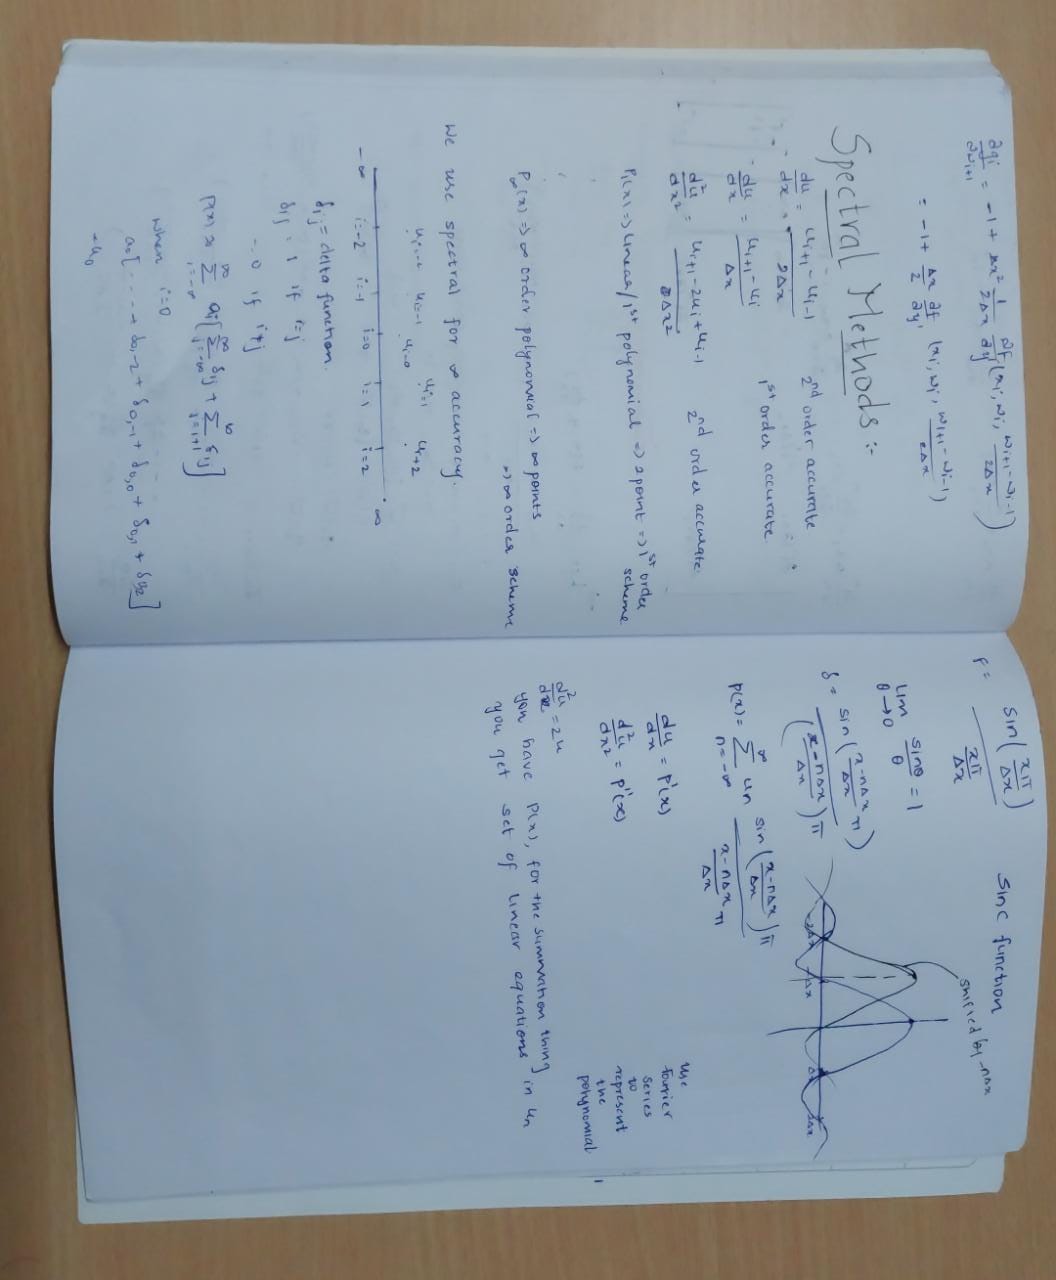 ∂gi/∂wi+1 = -1 + Δx² 1/2Δx ∂f/∂y' (xi, wi, wi+1-wi-1/2Δx)
= -1 + Δx/2 ∂f/∂y' (xi, wi, wi+1-wi-1/2Δx)
Spectral Methods :-
du/dx = ui+1 - ui-1/2Δx 2nd order accurate
du/dx = ui+1 - ui/Δx 1st order accurate
d²u/dx² = ui+1 - 2ui + ui-1/Δx² 2nd order accurate
P1(x) => linear/1st polynomial => 2 point => 1st order scheme
P∞(x) => ∞ order polynomial => ∞ points
=> ∞ order scheme
We use spectral for ∞ accuracy.
ui=-2 ui=-1 ui=0 ui=1 u+2
-∞ i=-2 i=-1 i=0 i=1 i=2 ∞
δij = delta function.
δij = 1 if i=j
= 0 if i≠j
P(x) = ∞Σi=-∞ ai[∞Σj=-∞ δij + ∞Σj=i+1 δij]
when i=0
a0[ . . . . + δ0,-2 + δ0,-1 + δ0,0 + δ0,1 + δ0,2]
= u0
F = sin(xπ/Δx)/xπ/Δx Sinc function
Lim θ→0 sinθ/θ = 1
shifted by nΔx
δ = sin(x-nΔx/Δx π)/(x-nΔx/Δx)π
-2Δx -Δx Δx 2Δx
P(x) = ∞Σn=-∞ un sin(x-nΔx/Δx)π/x-nΔx/Δx π
du/dx = P'(x)
d²u/dx² = P''(x)
use
fourier
series
to
represent
the
polynomial
d²u/dx² = 2u
you have P(x), for the summation thing
you get set of linear equations in un